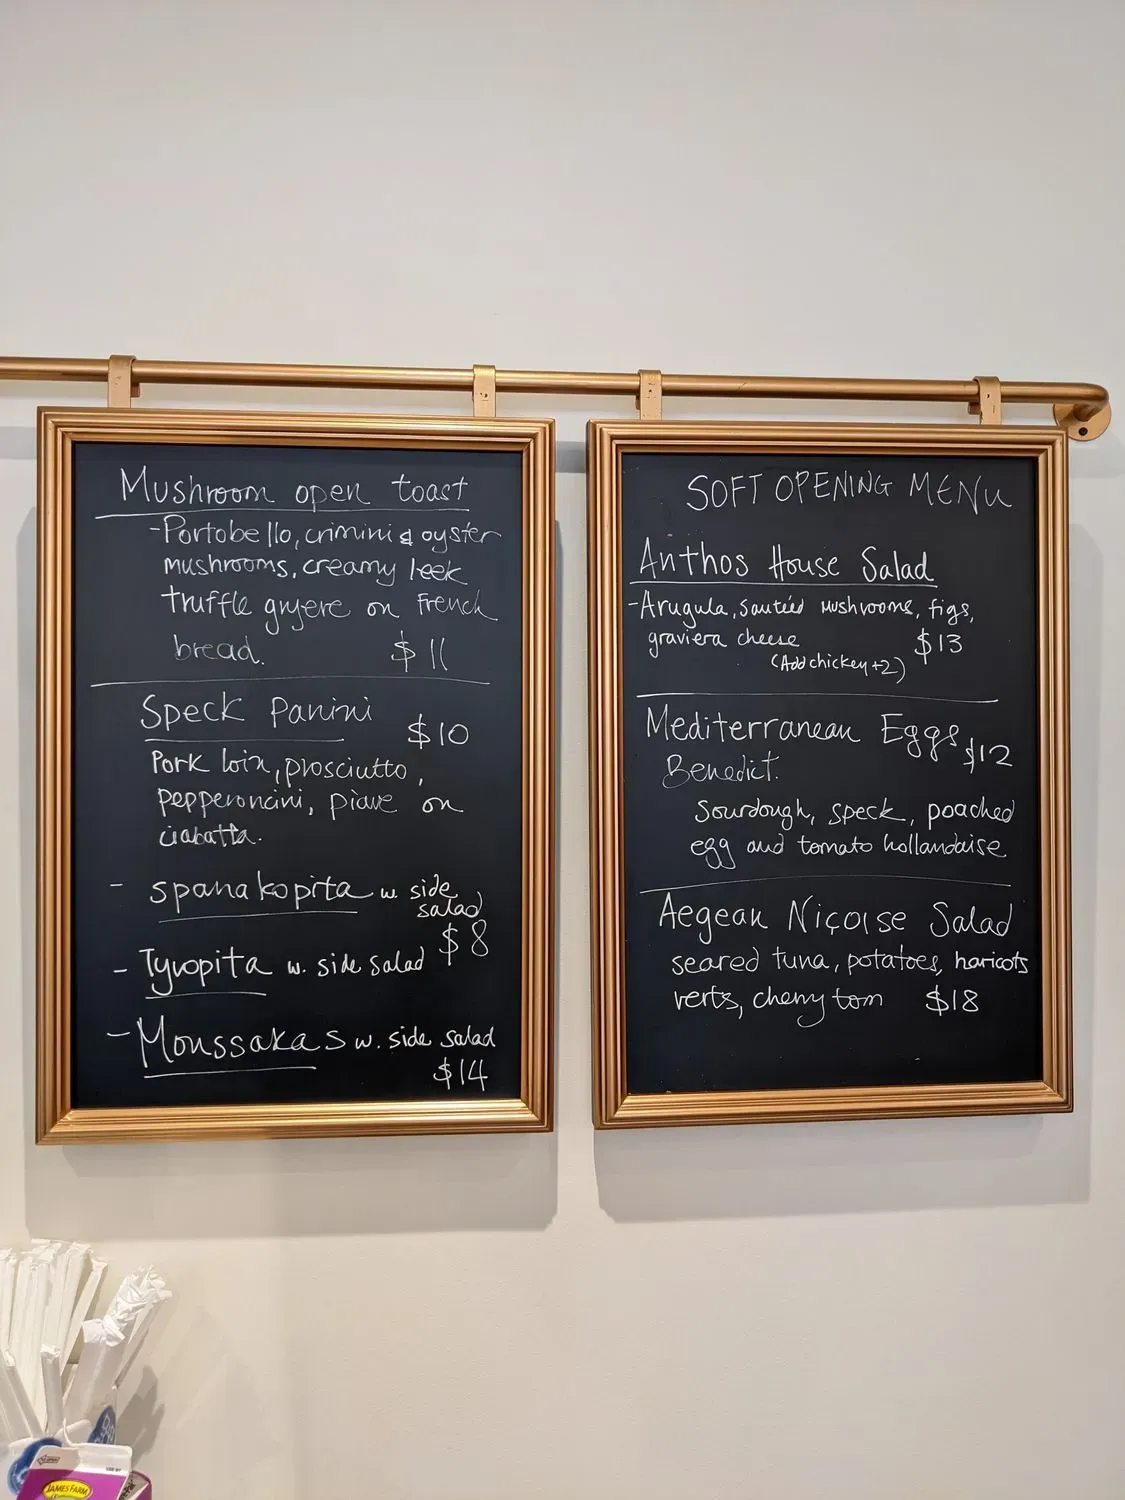 Mushroom open toast
-Portobello, crimini & oyster
mushrooms, creamy leek
truffle gruyere on French
bread.
$11
Speck Panini
$10
Pork loin, prosciutto,
pepperoncini, piave on
ciabatta.
- spanakopita w. side
salad
$8
- Tyropita w. side salad
- Moussakas w. side salad
$14
SOFT OPENING MENU
Anthos House Salad
-Arugula, sautéed mushrooms, figs,
graviera cheese $13
(Add chickey +2)
Mediterranean Eggs $12
Benedict.
Sourdough, speck, poached
egg and tomato hollandaise
Aegean Niçoise Salad
seared tuna, potatoes, haricots
verts, cherry tom $18
JAMES FARM